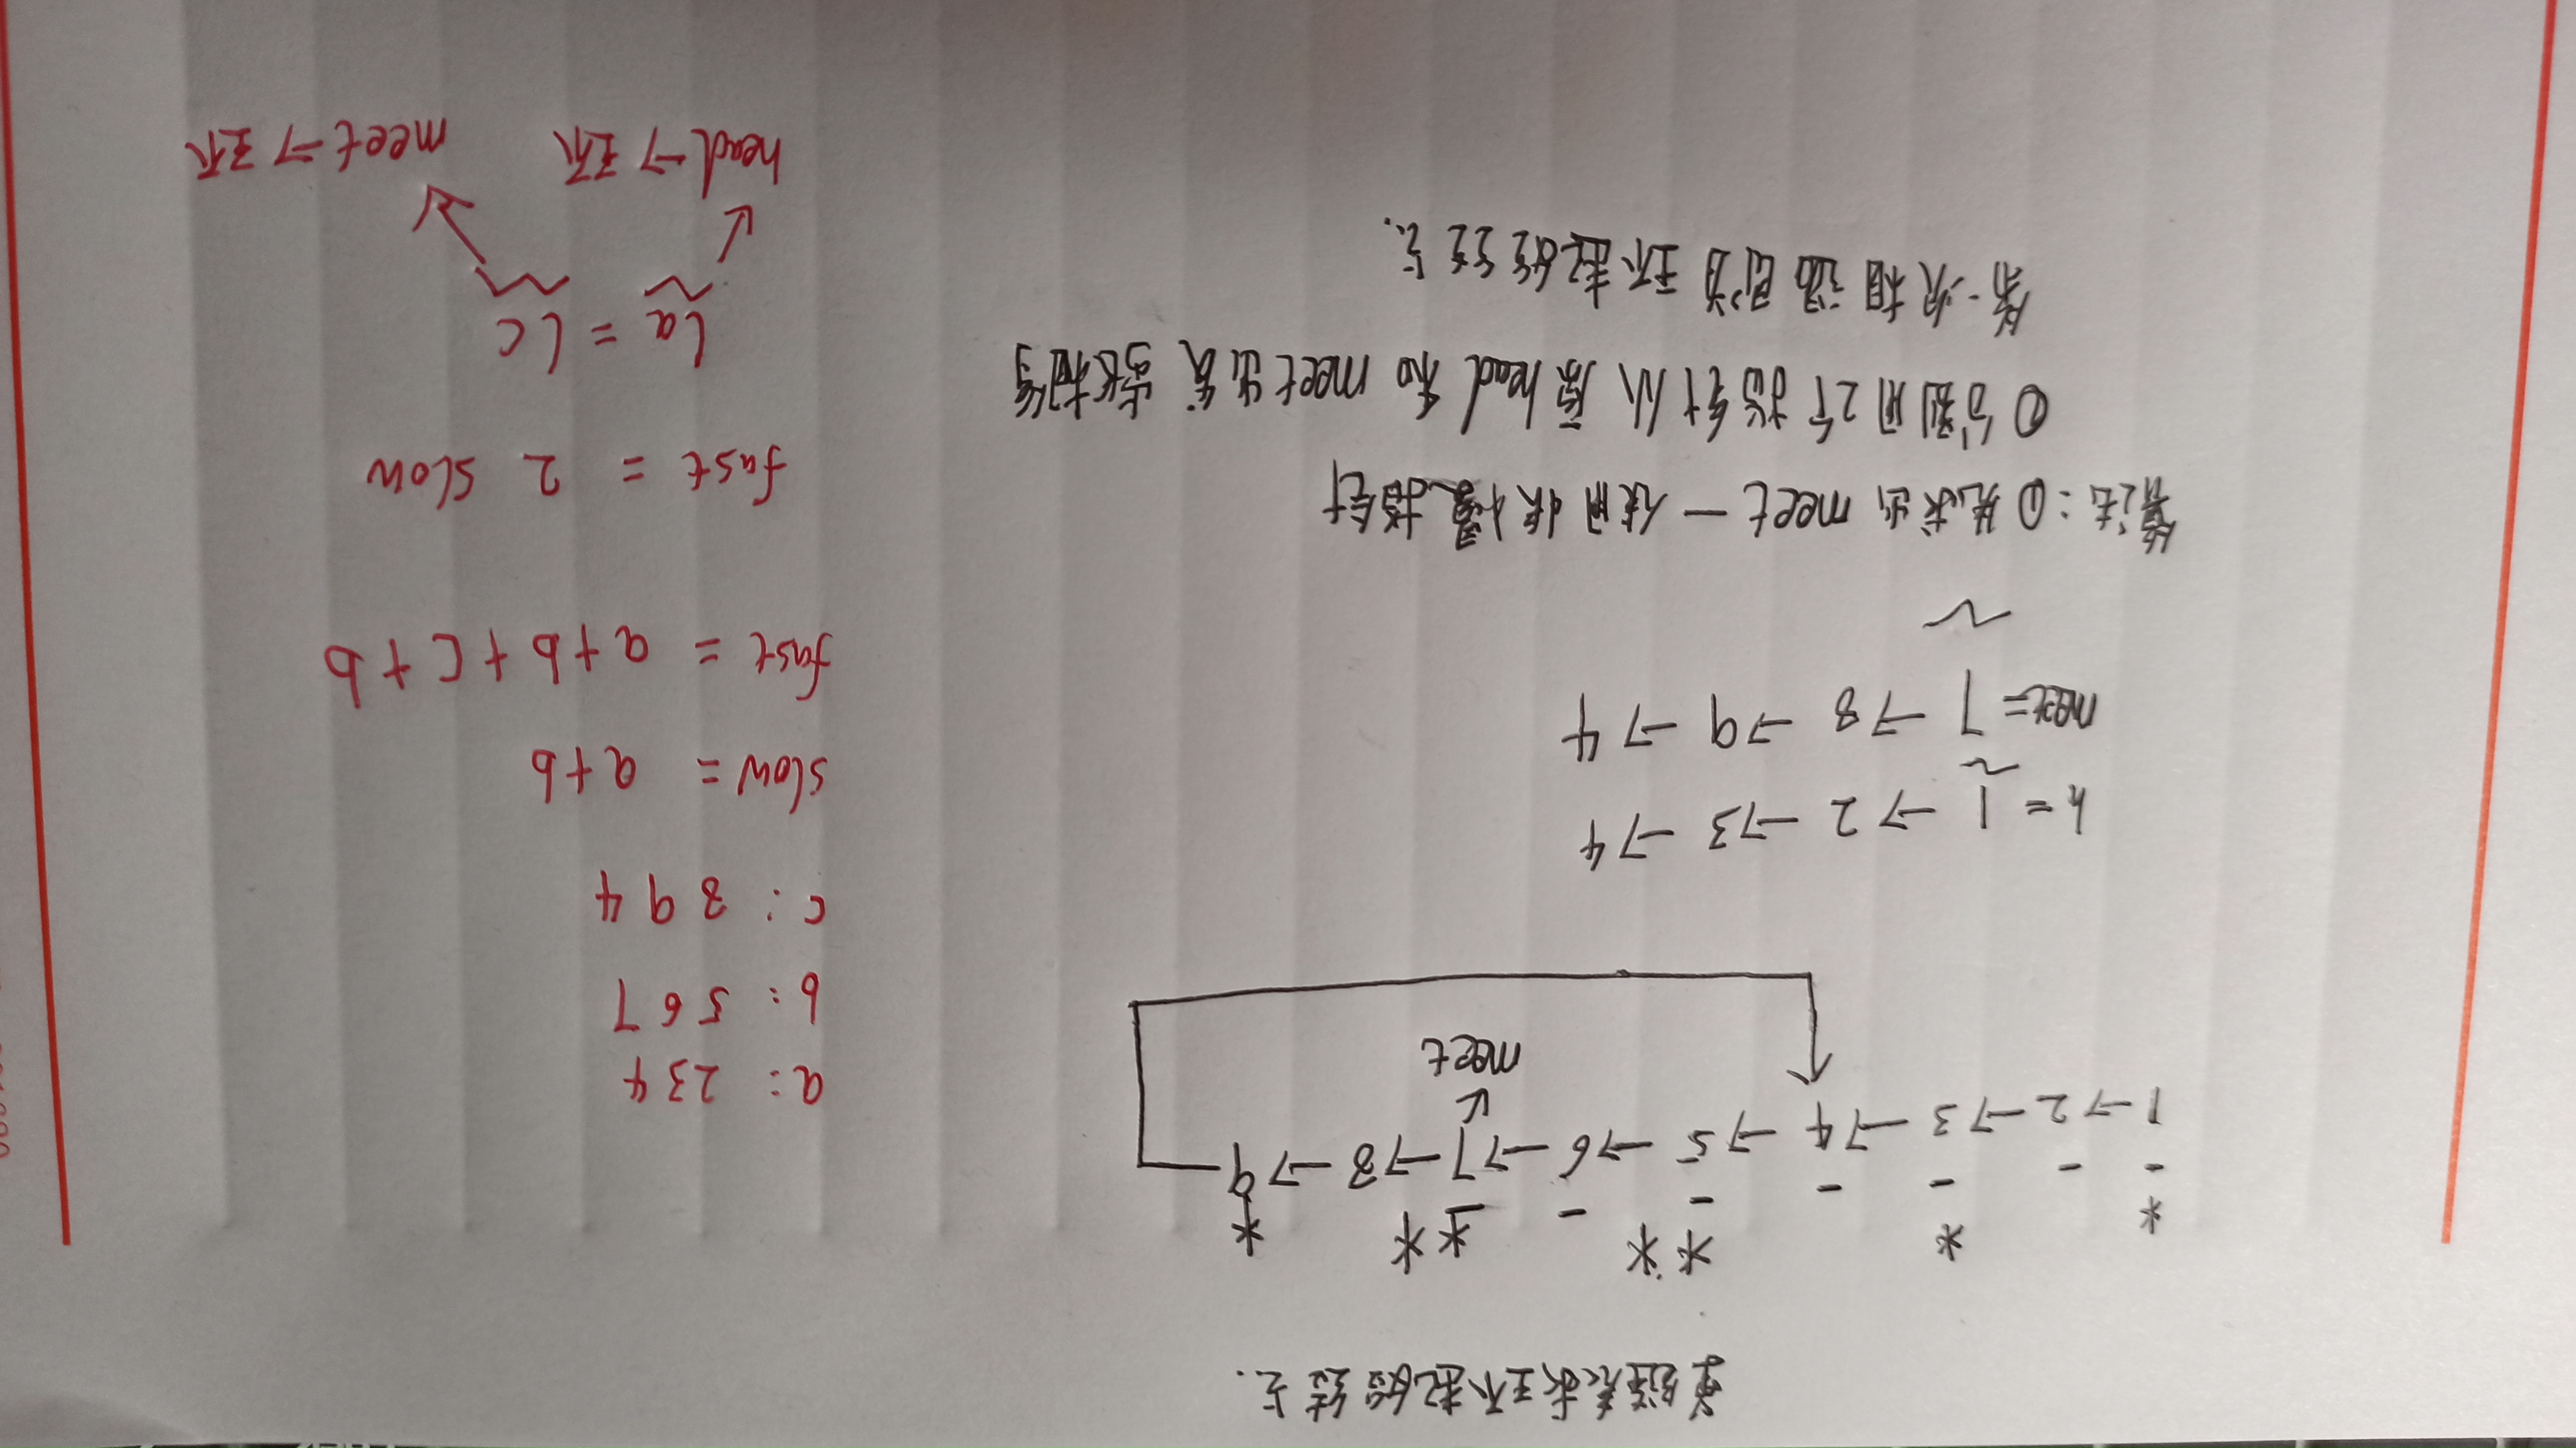 单链表求环起始结点.
* * * * * * *
- - - - - - -
1 → 2 → 3 → 4 → 5 → 6 → 7 → 8 → 9
meet
h = 1 → 2 → 3 → 4
meet = 7 → 8 → 9 → 4
算法: ① 先求出 meet — 使用快慢指针
① 分别用2个指针从原head和meet出发 步长相等
第一次相遇即为环起始结点.
a: 2 3 4
b: 5 6 7
c: 8 9 4
slow = a+b
fast = a+b+c+b
fast = 2 slow
la = lc
head → 环 meet → 环